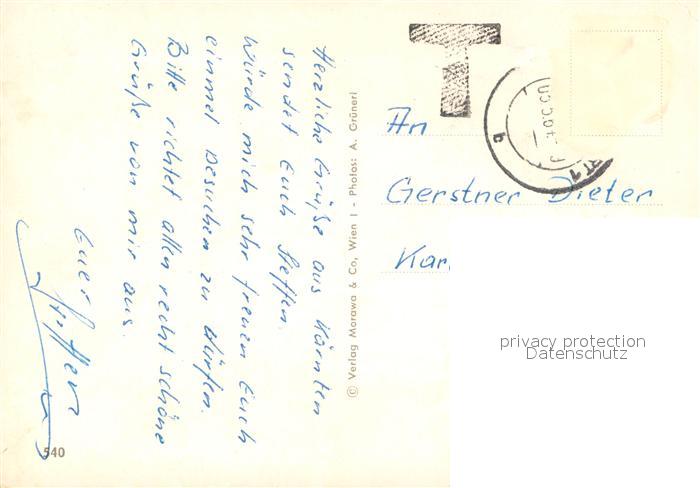 Herzliche Grüße aus Kärnten
sendet Euch Steffen.
Würde mich sehr freuen Euch
einmal besuchen zu dürfen.
Bitte richtet allen recht schöne
Grüße von mir aus.
Euer Steffen
© Verlag Morawa & Co, Wien I - Photos: A. Grünerl
540
T
b
An
Gerstner Dieter
Kar
privacy protection
Datenschutz